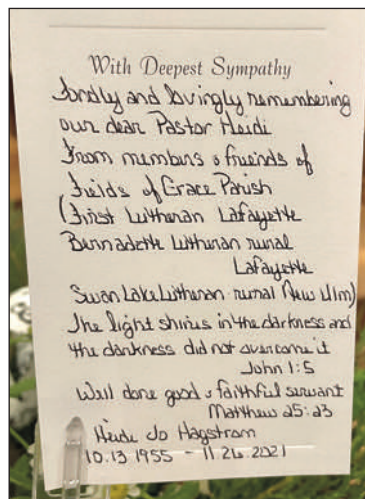 With Deepest Sympathy
Fondly and lovingly remembering
our dear Pastor Heidi
From members & friends of
Fields of Grace Parish
(First Lutheran Lafayette
Bernadotte Lutheran rural
Lafayette
Swan Lake Lutheran rural New Ulm)
The light shines in the darkness and
the darkness did not overcome it
John 1:5
Well done good & faithful servant
Matthew 25:23
Heide Jo Hagstrom
10.13 1955 - 11 26 2021